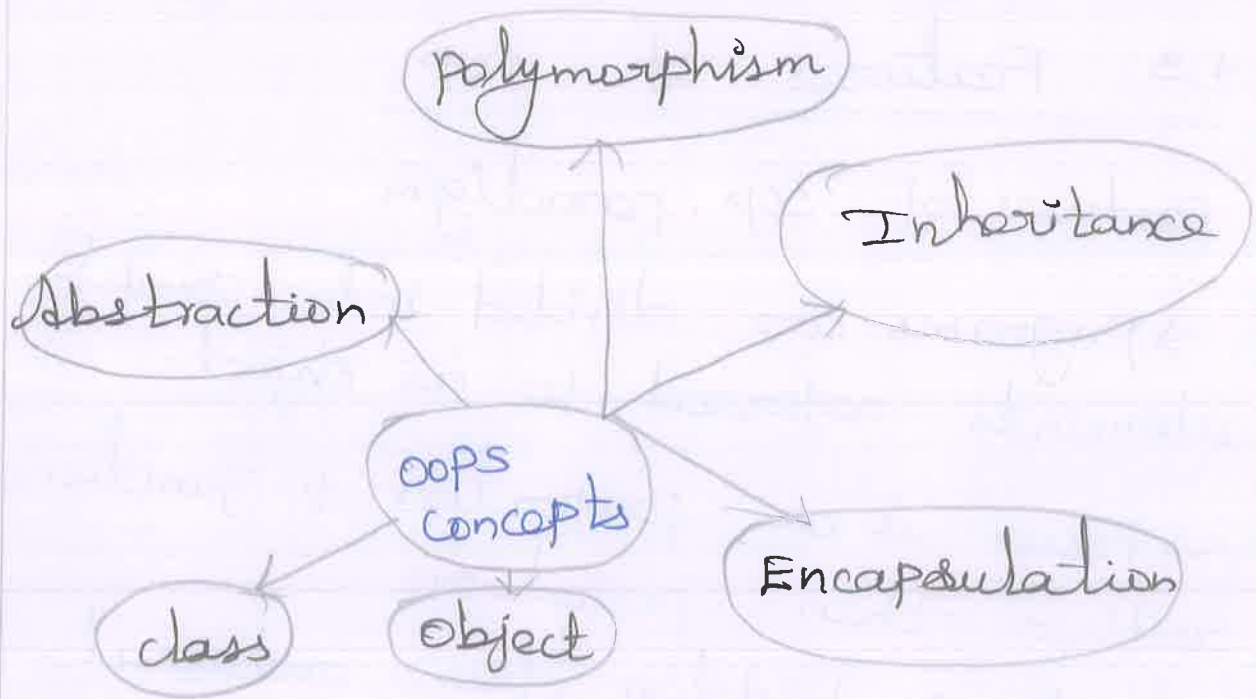 polymorphism
Inheritance
Abstraction
OOPS
concepts
Encapsulation
class
object